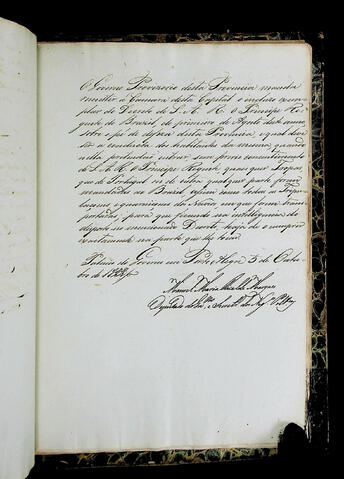 O Governo Provizorio desta Provincia manda
remetter á Camara desta Capital o incluzo exem-
plar do Decreto de S. A. R. o Principe Re-
gente do Brazil, do primeiro de Agosto deste anno
sobre o pé de defeza desta Provincia, e qual deve
ser a conducta dos habitantes da mesma, quando
nella pertendão entrar, sem previo consentimento
de S. A. R. o Principe Regente quaesquer Tropas,
que de Portugal ou de outra qualquer parte forem
mandadas ao Brazil, assim como todas as Tripu-
laçoens e guarniçoens dos Navios em que forem trans-
portadas, para que ficando na intelligencia do
disposto no mencionado Decreto, haja de o cumprir
exactamente na parte que lhe toca.
Palacio do Governo em Porto Alegre 5 de Outu-
bro de
Manoel Maria
Deputado